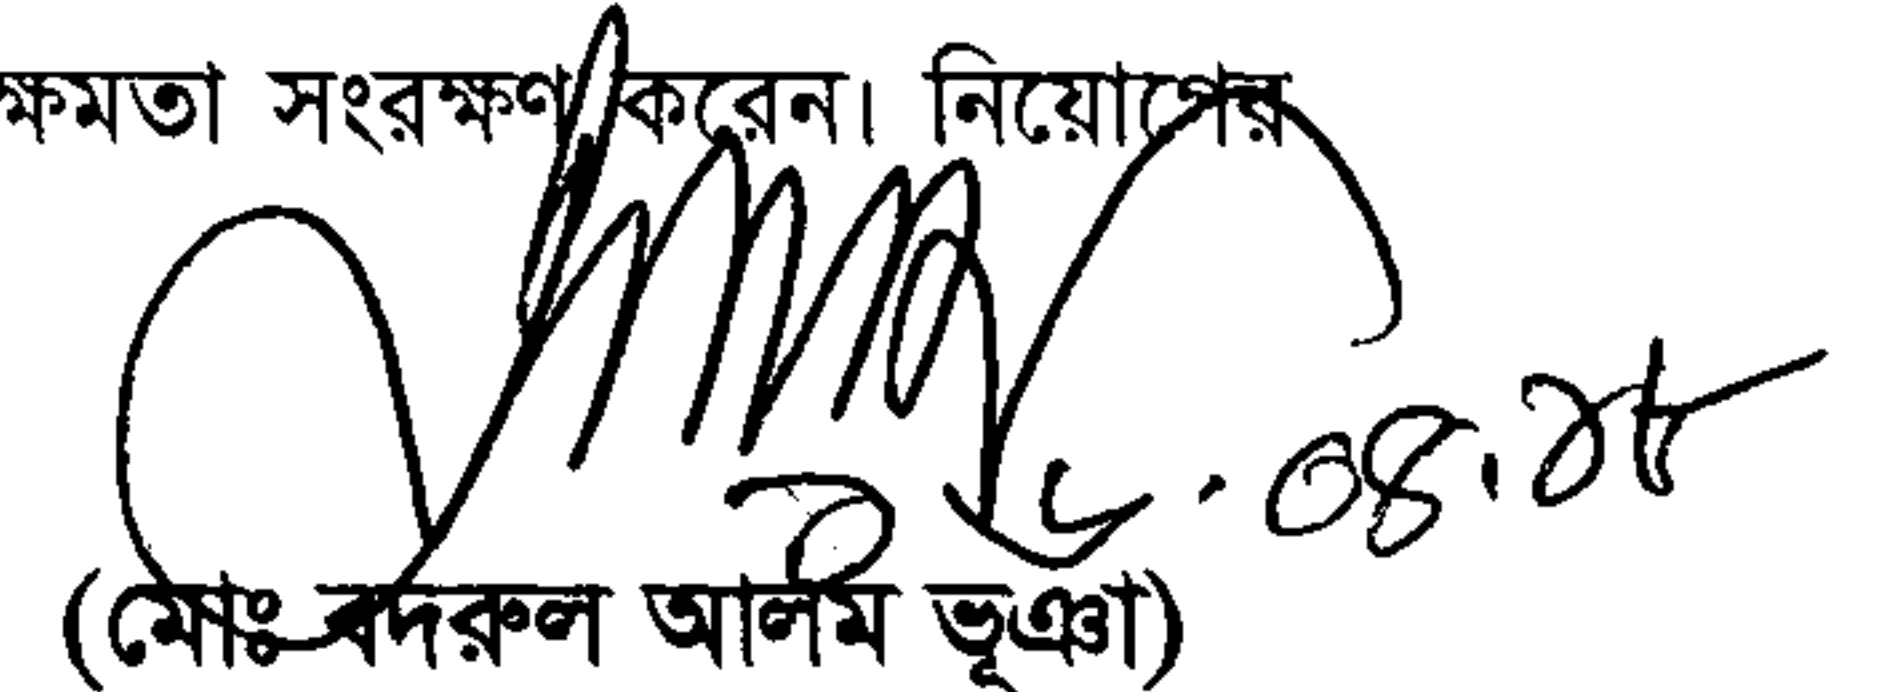 ক্ষমতা সংরক্ষণ করেন। নিয়োগের
(মোঃ বদরুল আলম ভূঞা)